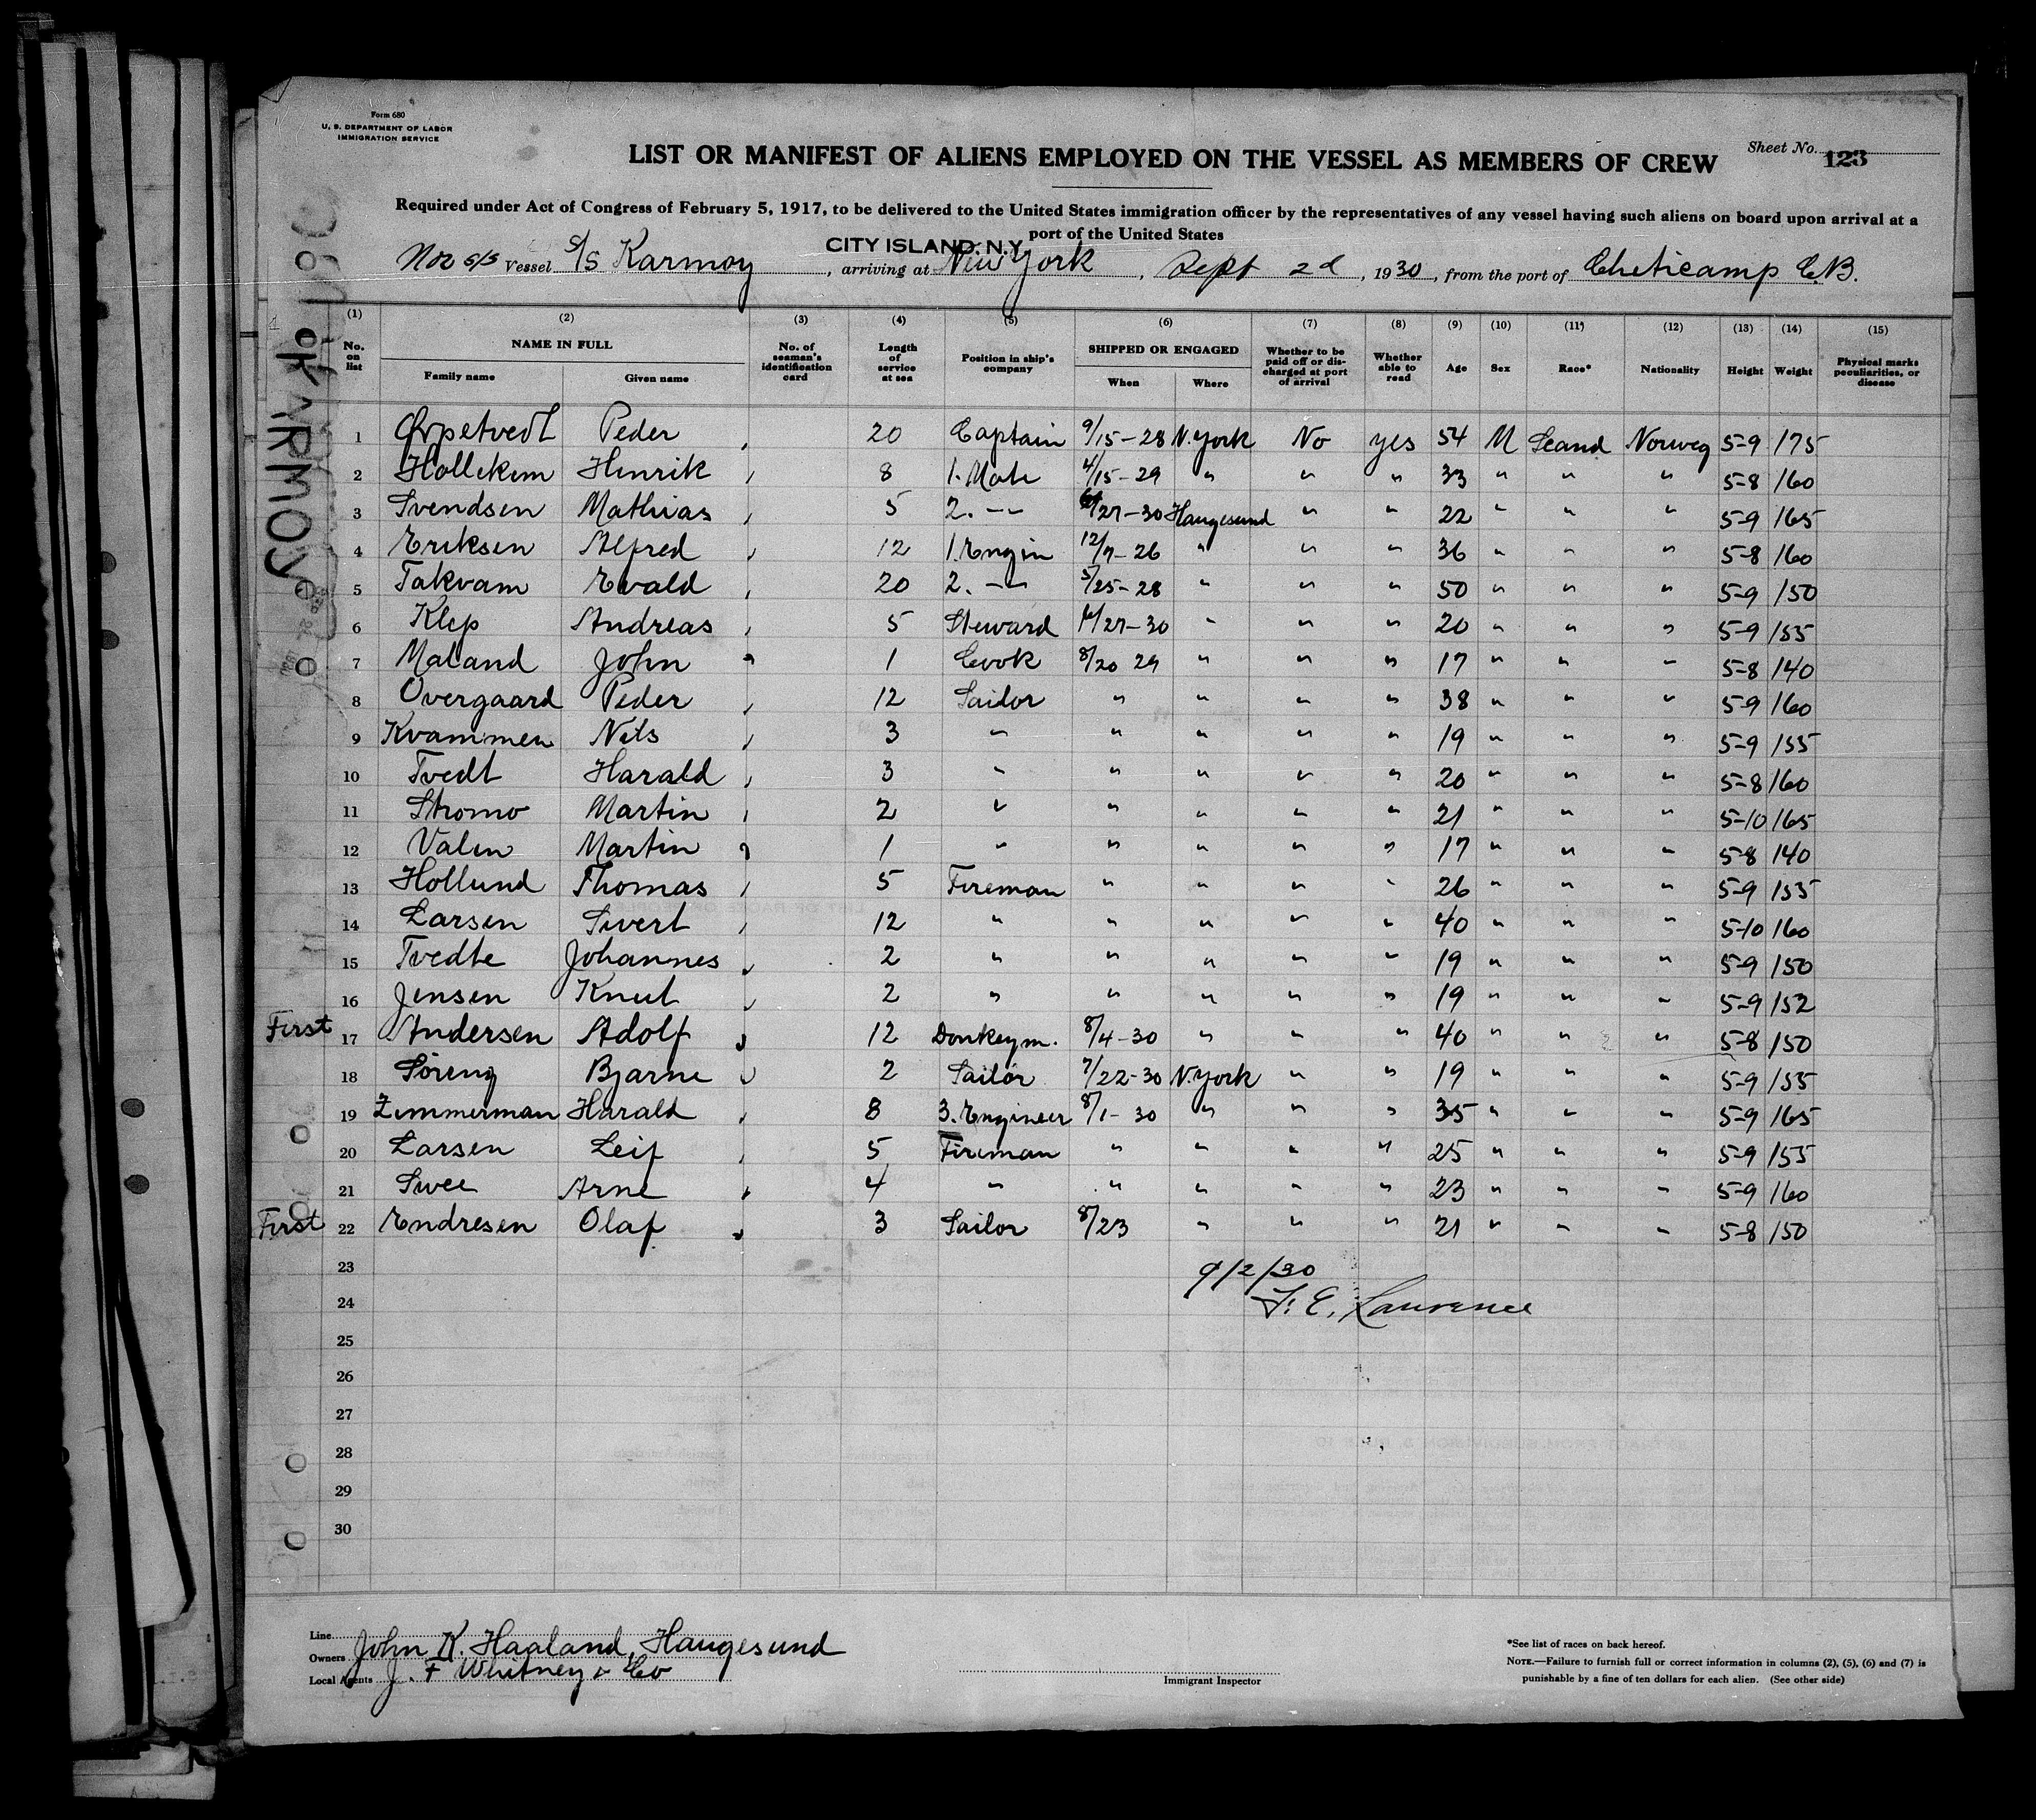 Form 680
U. S. DEPARTMENT OF LABOR
IMMIGRATION SERVICE
Sheet No. 123
LIST OR MANIFEST OF ALIENS EMPLOYED ON THE VESSEL AS MEMBERS OF CREW
Required under Act of Congress of February 5, 1917, to be delivered to the United States immigration officer by the representatives of any vessel having such aliens on board upon arrival at a
port of the United States
CITY ISLAND, N.Y.
Nor s/s Vessel S/S Karmoy, arriving at New York, Sept 2d, 1930, from the port of Cheticamp C.B.
KARMOY
(1) (2) (3) (4) (5) (6) (7) (8) (9) (10) (11) (12) (13) (14) (15)
No. on list NAME IN FULL Family name Given name No. of seaman's identification card Length of service at sea Position in ship's company SHIPPED OR ENGAGED When Where Whether to be paid off or discharged at port of arrival Whether able to read Age Sex Race* Nationality Height Weight Physical marks peculiarities, or disease
1 Peder 20 Captain 9/15-28 N.York No yes 54 M Scand Norweg 5-9 175
2 Hollekim Henrik 8 1. Mate 4/15-29 " " " 33 " " " 5-8 160
3 Svendsen Mathias 5 2. -- /27-30 Haugesund " " 22 " " " 5-9 165
4 Eriksen Alfred 12 1. Engin 12/7-26 " " " 36 " " " 5-8 160
5 Takvam Evald 20 2. -- 5/25-28 " " " 50 " " " 5-9 150
6 Klep Andreas 5 Steward /27-30 " " " 20 " " " 5-9 155
7 Maland John 1 Cook 8/20 29 " " " 17 " " " 5-8 140
8 Overgaard Peder 12 Sailor " " " " 38 " " " 5-9 160
9 Kvammen Nils 3 " " " " " 19 " " " 5-9 155
10 Tvedt Harald 3 " " " " " 20 " " " 5-8 160
11 Stromo Martin 2 " " " " " 21 " " " 5-10 165
12 Valen Martin 1 " " " " " 17 " " " 5-8 140
13 Hollund Thomas 5 Fireman " " " " 26 " " " 5-9 155
14 Larsen Sivert 12 " " " " " 40 " " " 5-10 160
15 Tvedte Johannes 2 " " " " " 19 " " " 5-9 150
16 Jensen Knut 2 " " " " " 19 " " " 5-9 152
First 17 Andersen Adolf 12 Donkeym. 8/4-30 " " " 40 " " " 5-8 150
18 Soreng Bjarne 2 Sailor 7/22-30 N.York " " 19 " " " 5-9 155
19 Zimmerman Harald 8 3. Engineer 8/1-30 " " " 35 " " " 5-9 165
20 Larsen Leif 5 Fireman " " " " 25 " " " 5-9 155
21 Svee Arne 4 " " " " " 23 " " " 5-9 160
First 22 Endresen Olaf 3 Sailor 8/23 " " " 21 " " " 5-8 150
23 9/2/30
24 Laurence
25
26
27
28
29
30
Line
Owners John K. Haaland, Haugesund
Local Agents J. F Whitney & Co
Immigrant Inspector
*See list of races on back hereof.
NOTE.—Failure to furnish full or correct information in columns (2), (5), (6) and (7) is
punishable by a fine of ten dollars for each alien. (See other side)